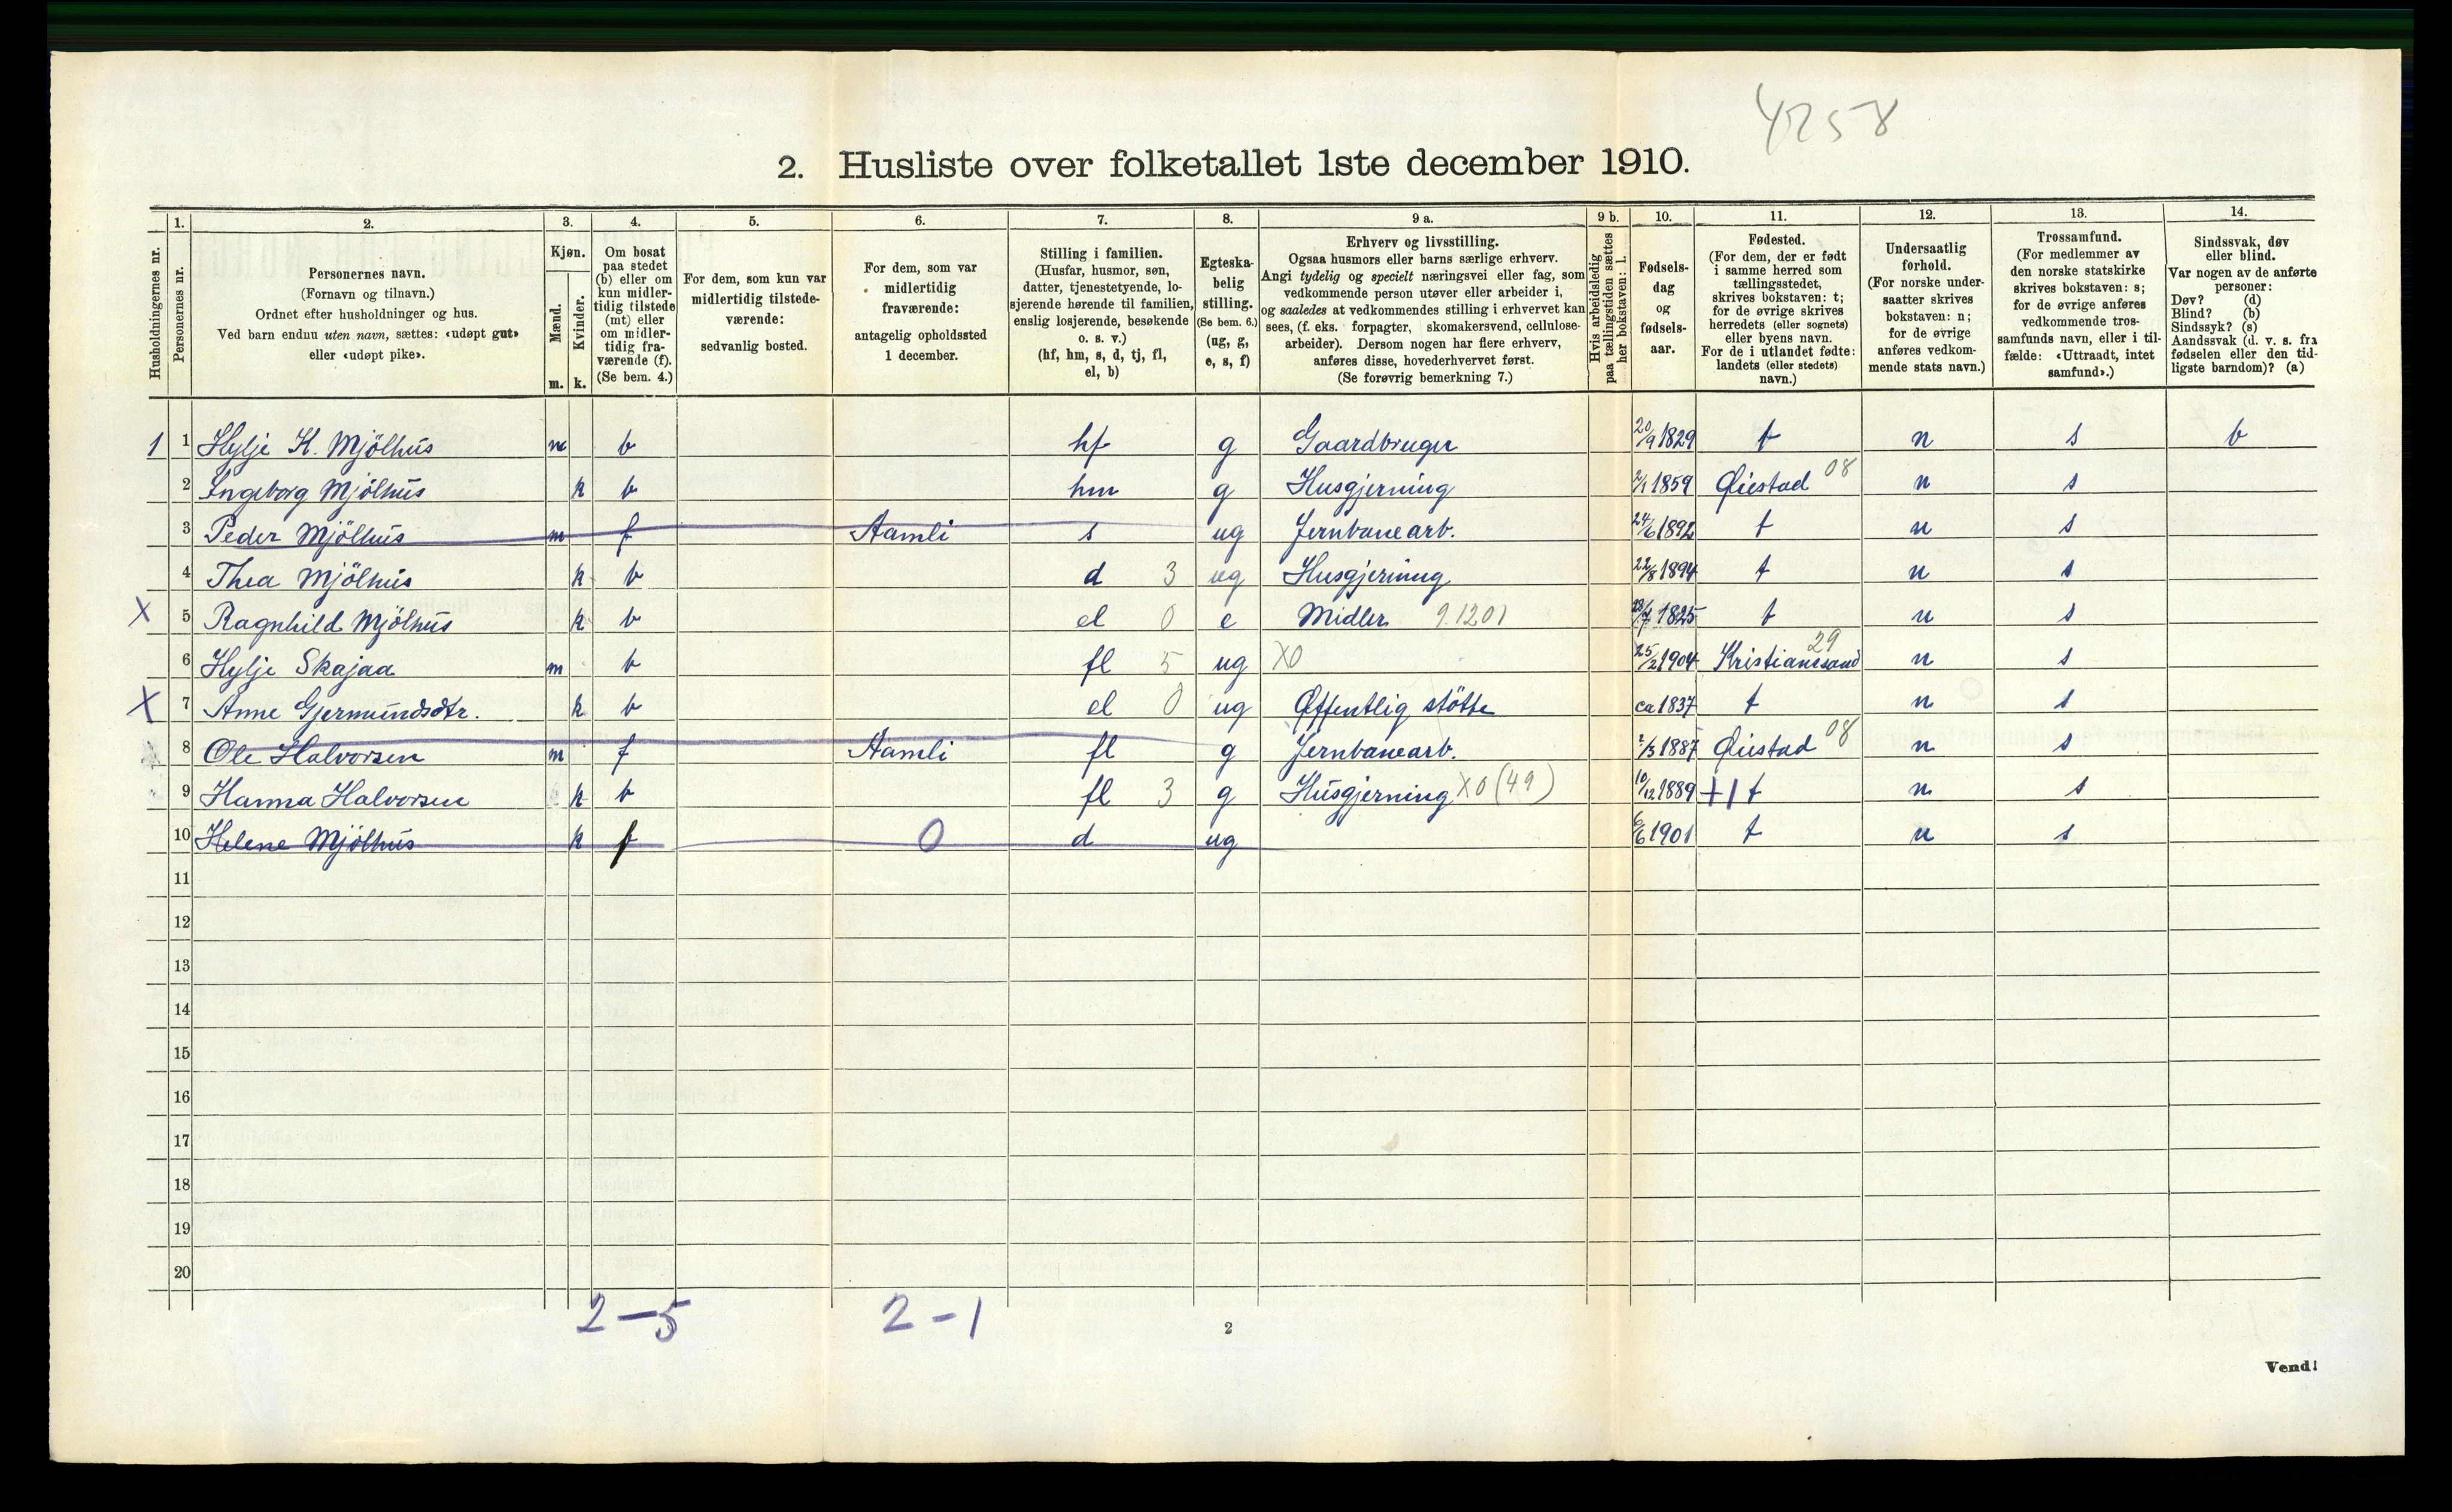 4258
2. Husliste over folketallet 1ste december 1910.
Husholdningernes nr.
1.
Personernes nr.
2.
Personernes navn.
(Fornavn og tilnavn.)
Ordnet efter husholdninger og hus.
Ved barn endnu uten navn, sættes: «udøpt gut»
eller «udøpt pike».
3.
Kjøn.
Mænd.
m.
Kvinder.
k.
4.
Om bosat
paa stedet
(b) eller om
kun midler-
tidig tilstede
(mt) eller
om midler-
tidig fra-
værende (f).
(Se bem. 4.)
5.
For dem, som kun var
midlertidig tilstede-
værende:
sedvanlig bosted.
6.
For dem, som var
midlertidig
fraværende:
antagelig opholdssted
1 december.
7.
Stilling i familien.
(Husfar, husmor, søn,
datter, tjenestetyende, lo-
sjerende hørende til familien,
enslig losjerende, besøkende
o. s. v.)
(hf, hm, s, d, tj, fl,
el, b)
8.
Egteska-
belig
stilling.
(Se bem. 6.)
(ug, g,
e, s, f)
9 a.
Erhverv og livsstilling.
Ogsaa husmors eller barns særlige erhverv.
Angi tydelig og specielt næringsvei eller fag, som
vedkommende person utøver eller arbeider i,
og saaledes at vedkommendes stilling i erhvervet kan
sees, (f. eks. forpagter, skomakersvend, cellulose-
arbeider). Dersom nogen har flere erhverv,
anføres disse, hovederhvervet først.
(Se forøvrig bemerkning 7.)
9 b.
Hvis arbeidsledig
paa tællingstiden sættes
her bokstaven: l.
10.
Fødsels-
dag
og
fødsels-
aar.
11.
Fødested.
(For dem, der er født
i samme herred som
tællingsstedet,
skrives bokstaven: t;
for de øvrige skrives
herredets (eller sognets)
eller byens navn.
For de i utlandet fødte:
landets (eller stedets)
navn.)
12.
Undersaatlig
forhold.
(For norske under-
saatter skrives
bokstaven: n;
for de øvrige
anføres vedkom-
mende stats navn.)
13.
Trossamfund.
(For medlemmer av
den norske statskirke
skrives bokstaven: s;
for de øvrige anføres
vedkommende tros-
samfunds navn, eller i til-
fælde: «Uttraadt, intet
samfund».)
14.
Sindssvak, døv
eller blind.
Var nogen av de anførte
personer:
Døv? (d)
Blind? (b)
Sindssyk? (s)
Aandssvak (d. v. s. fra
fødselen eller den tid-
ligste barndom)? (a)
1 1 Hylje K. Mjölhus m b hf g Gaardbruger 20/9 1829 t n s b
2 Ingeborg Mjölhus k b hm g Husgjerning 1859 Øiestad 08 n s
3 Peder Mjölhus m f Aamli s ug Jernbanearb. 24/6 1892 t n s
4 Thea Mjölhus k b d 3 ug Husgjerning 22/8 1894 t n s
X 5 Ragnhild Mjölhus k b el 0 e Midler 9.1201 1825 t n s
6 Hylje Skajaa m b fl 5 ug X0 25/2 1904 Kristianssand 29 n s
X 7 Anne Gjermundsdtr. k b el 0 ug Offentlig stötte ca 1837 t n s
8 Ole Halvorsen m f Aamli fl g Jernbanearb. 1887 Øiestad 08 n s
9 Hanna Halvorsen k b fl 3 g Husgjerning X0 (49) 10/12 1889 +1 t n s
10 Helene Mjölhus k f 0 d ug 6/6 1901 t n s
11
12
13
14
15
16
17
18
19
20
2-5 2-1
2
Vend!